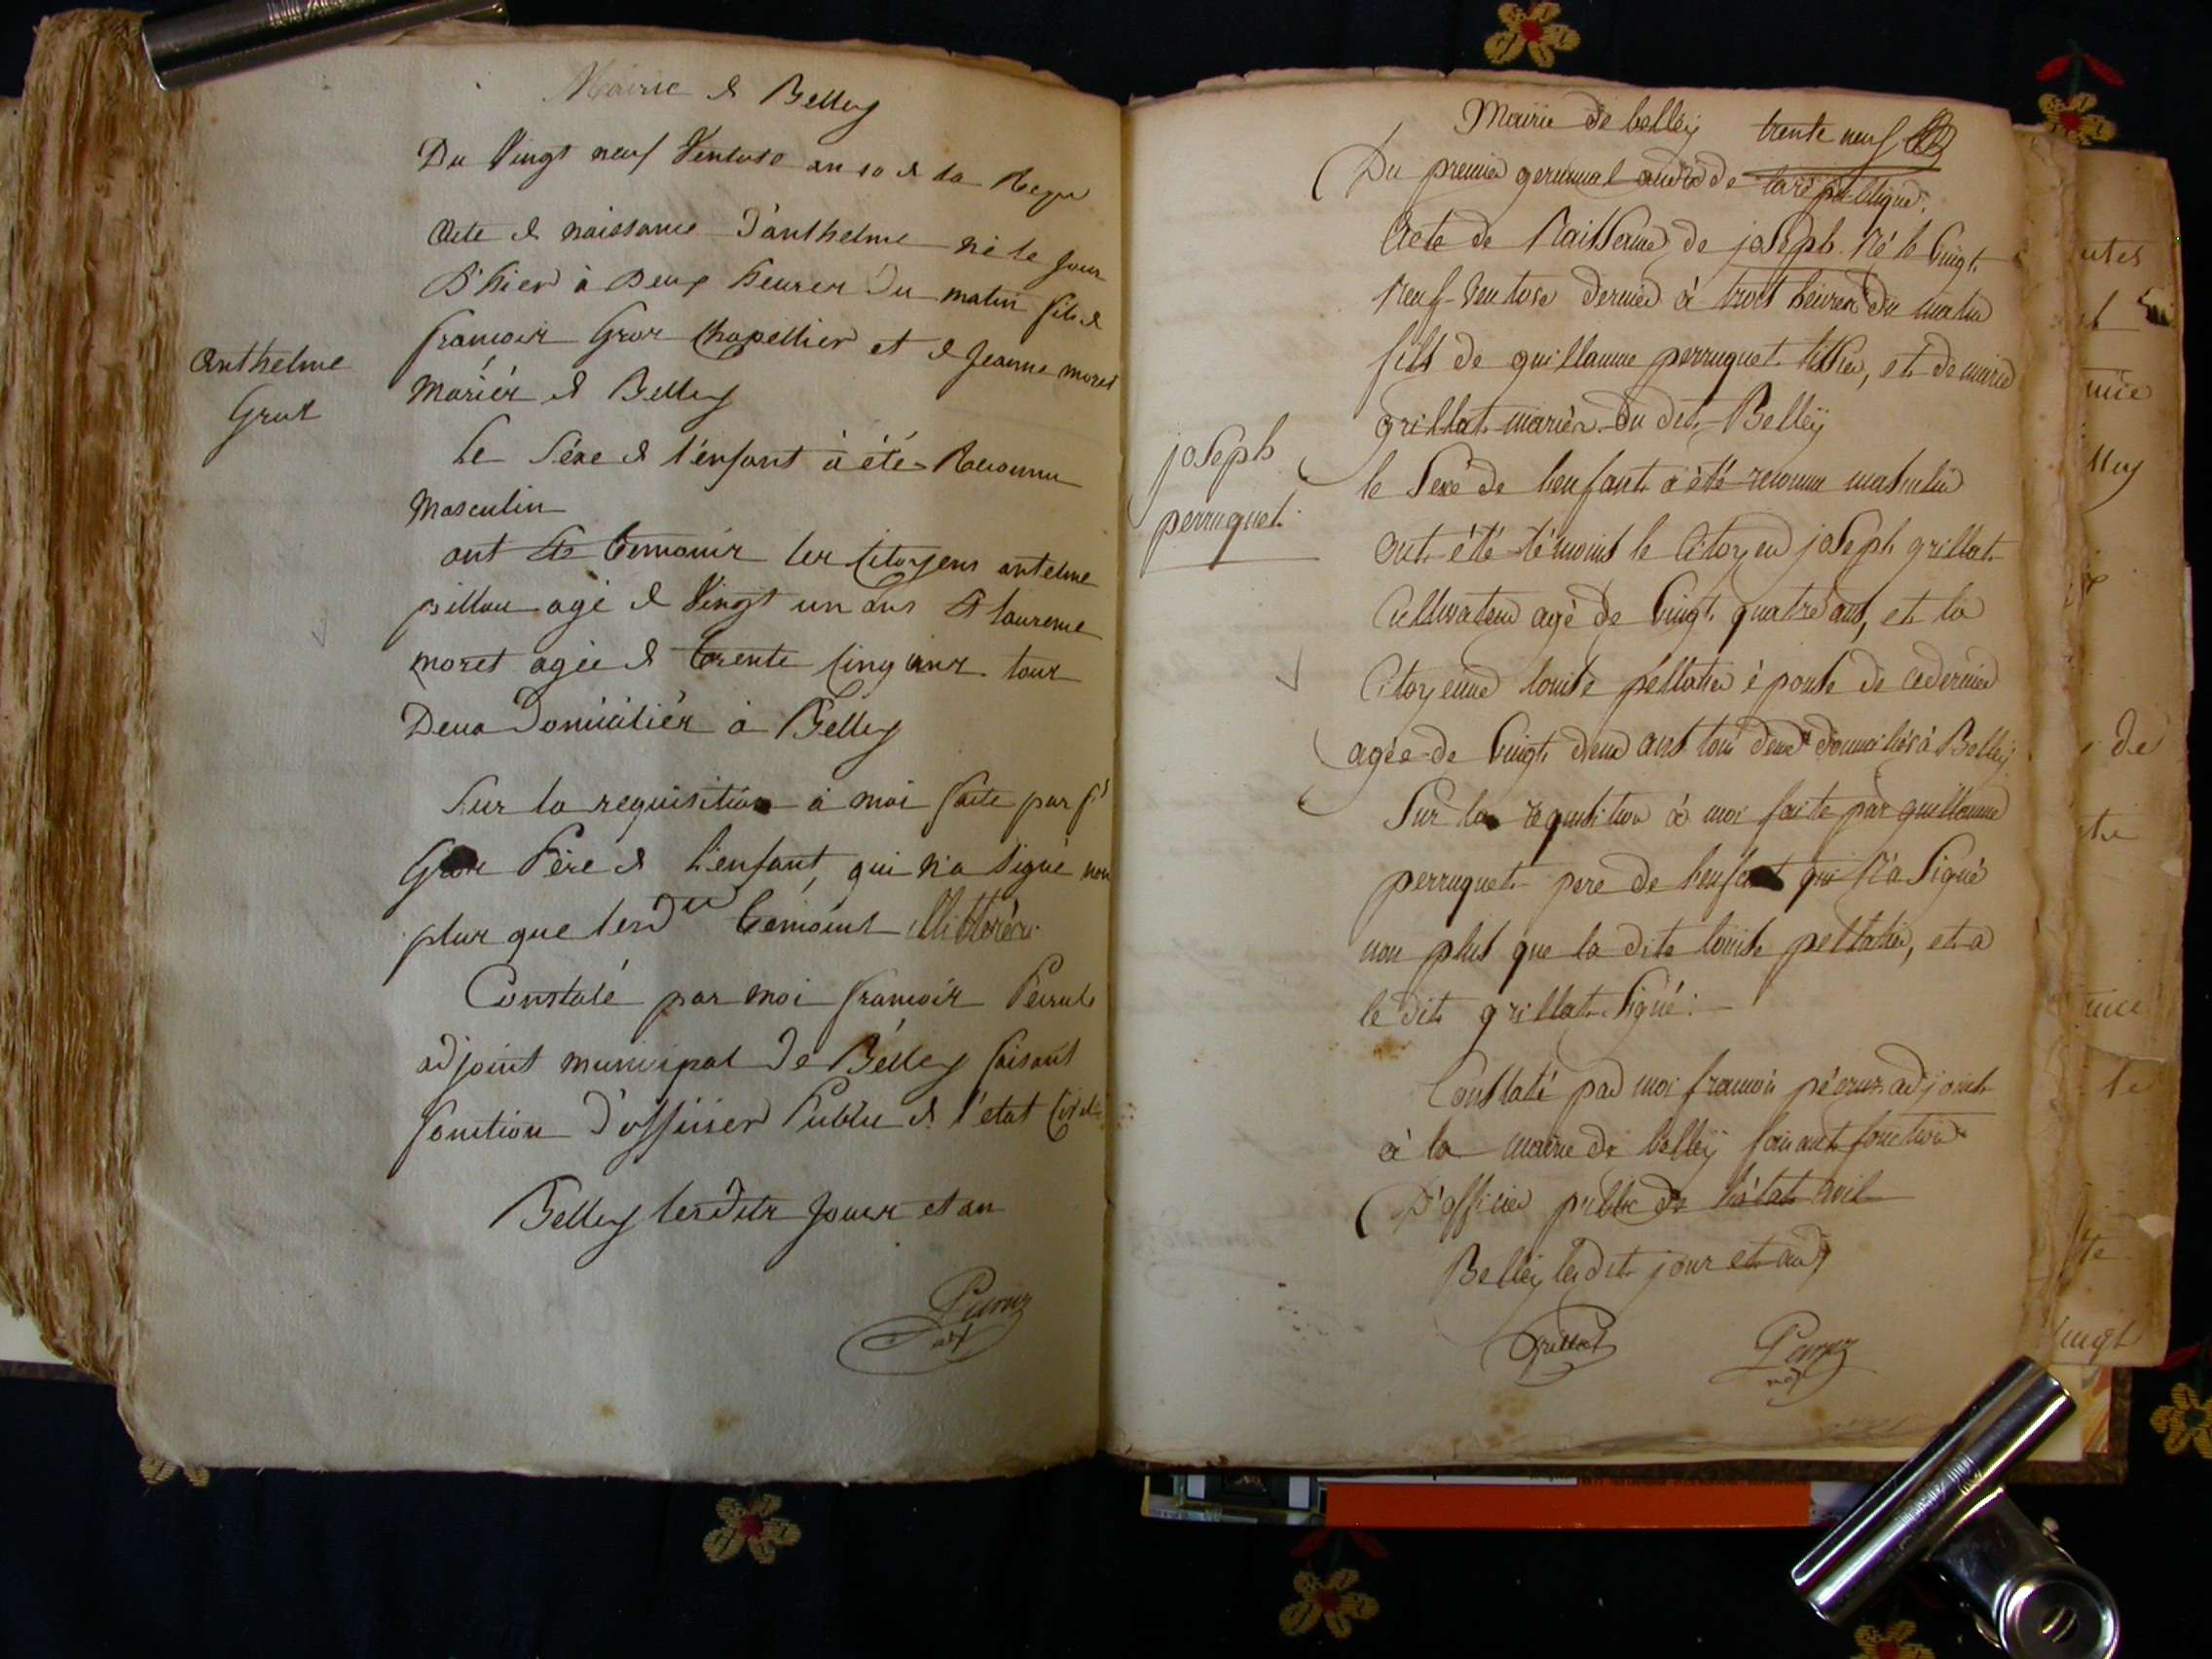 Mairie de Belley
Du Vingt neuf Ventose an 10 de la Repu
Acte de naissance D'anthelme né le jour
D'hier à Deux heures Du matin fils de
francois Gros Chapellier et de Jeanne moret
Mariés de Belley
Anthelme
Gros
Le Séxe de l'énfant à été Reconnu
Masculin
ont été temoins les Citoyens antelme
pillou agé de Vingt un ans et laurence
moret agée de trente Cinq ans tous
Deux Domiciliés à Belley
Sur la requisition à moi faite par f.s
Gros Père de l'enfant, qui n'a Signé non
plus que lesd. temoins illitérés
Constaté par moi francois
adjoint municipal De Belley faisant
fonction D'officier Public de l'état Civil
Belley lesdits jours et an
Mairie de belleÿ trente neuf
Du premier germinal an dix de la république.
Acte de Naissance de joseph Né le Vingt
neuf Ventose dernier à trois heures du matin
fils de guillaume perruquet tissier, et de marie
grillat mariés du dit Belleÿ
joseph
perruquet
le Sexe de l'enfant à été reconnu masculin
Ont été témoins le Citoyen joseph grillat
Cultivateur agé de Vingt quatre ans, et la
Citoyenne louise pellatier épouse de cedernier
agée de Vingt deux ans tous deux domiciliés à Belleÿ
Sur la réquisition à moi faite par guillaume
perruquet pere de l'enfant qui N'a Signé
non plus que la dite louise pellatier, et a
le dit grillat Signé.
Constaté par moi francois adjoint
à la mairie de belleÿ faisant fonction
D'officier public de l'état Civil
Belleÿ lesdit jour et an
Grillat
utes
lley
de
le
te
vingt